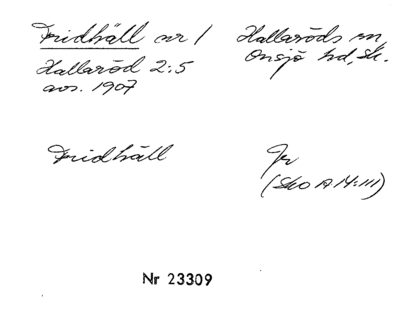 Fridhäll nr 1 Hallaröds sn,
Hallaröd 2:5 Onsjö hd, Sk.
avs. 1907
Fridhäll Jr
(Sko A 14:III)
Nr 23309